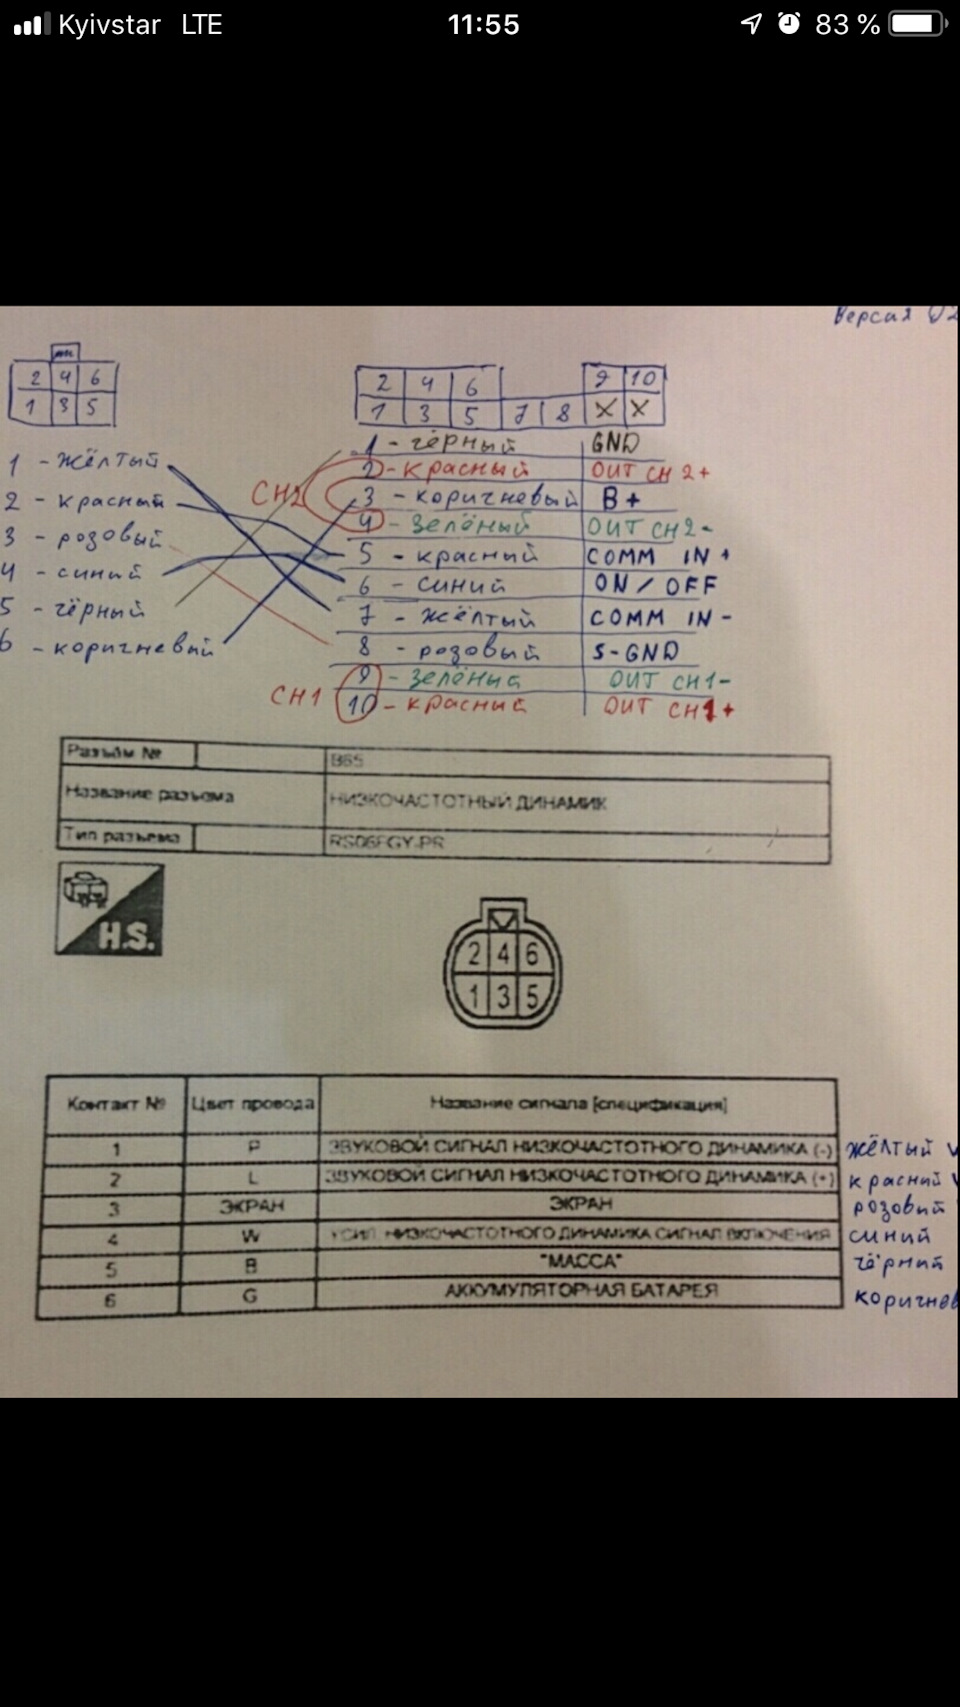 Kyivstar LTE 11:55 83 %
Версия 02
2 4 6
1 3 5
2 4 6 9 10
1 3 5 7 8 X X
1 - жёлтый
2 - красный
3 - розовый
4 - синий
5 - чёрный
6 - коричневый
CH2
CH1
1 - чёрный GND
2 - красный OUT CH2+
3 - коричневый B+
4 - зелёный OUT CH2-
5 - красный COMM IN +
6 - синий ON / OFF
7 - жёлтый COMM IN -
8 - розовый S-GND
9 - зелёный OUT CH1-
10 - красный OUT CH1+
Разъём № B65
Название разъема НИЗКОЧАСТОТНЫЙ ДИНАМИК
Тип разъема RS06FGY-PR
H.S.
2 4 6
1 3 5
Контакт № Цвет провода Название сигнала [спецификация]
1 P ЗВУКОВОЙ СИГНАЛ НИЗКОЧАСТОТНОГО ДИНАМИКА (-) жёлтый V
2 L ЗВУКОВОЙ СИГНАЛ НИЗКОЧАСТОТНОГО ДИНАМИКА (+) красный V
3 ЭКРАН ЭКРАН розовый
4 W УСИЛ. НИЗКОЧАСТОТНОГО ДИНАМИКА СИГНАЛ ВКЛЮЧЕНИЯ синий
5 B "МАССА" чёрный
6 G АККУМУЛЯТОРНАЯ БАТАРЕЯ коричнев